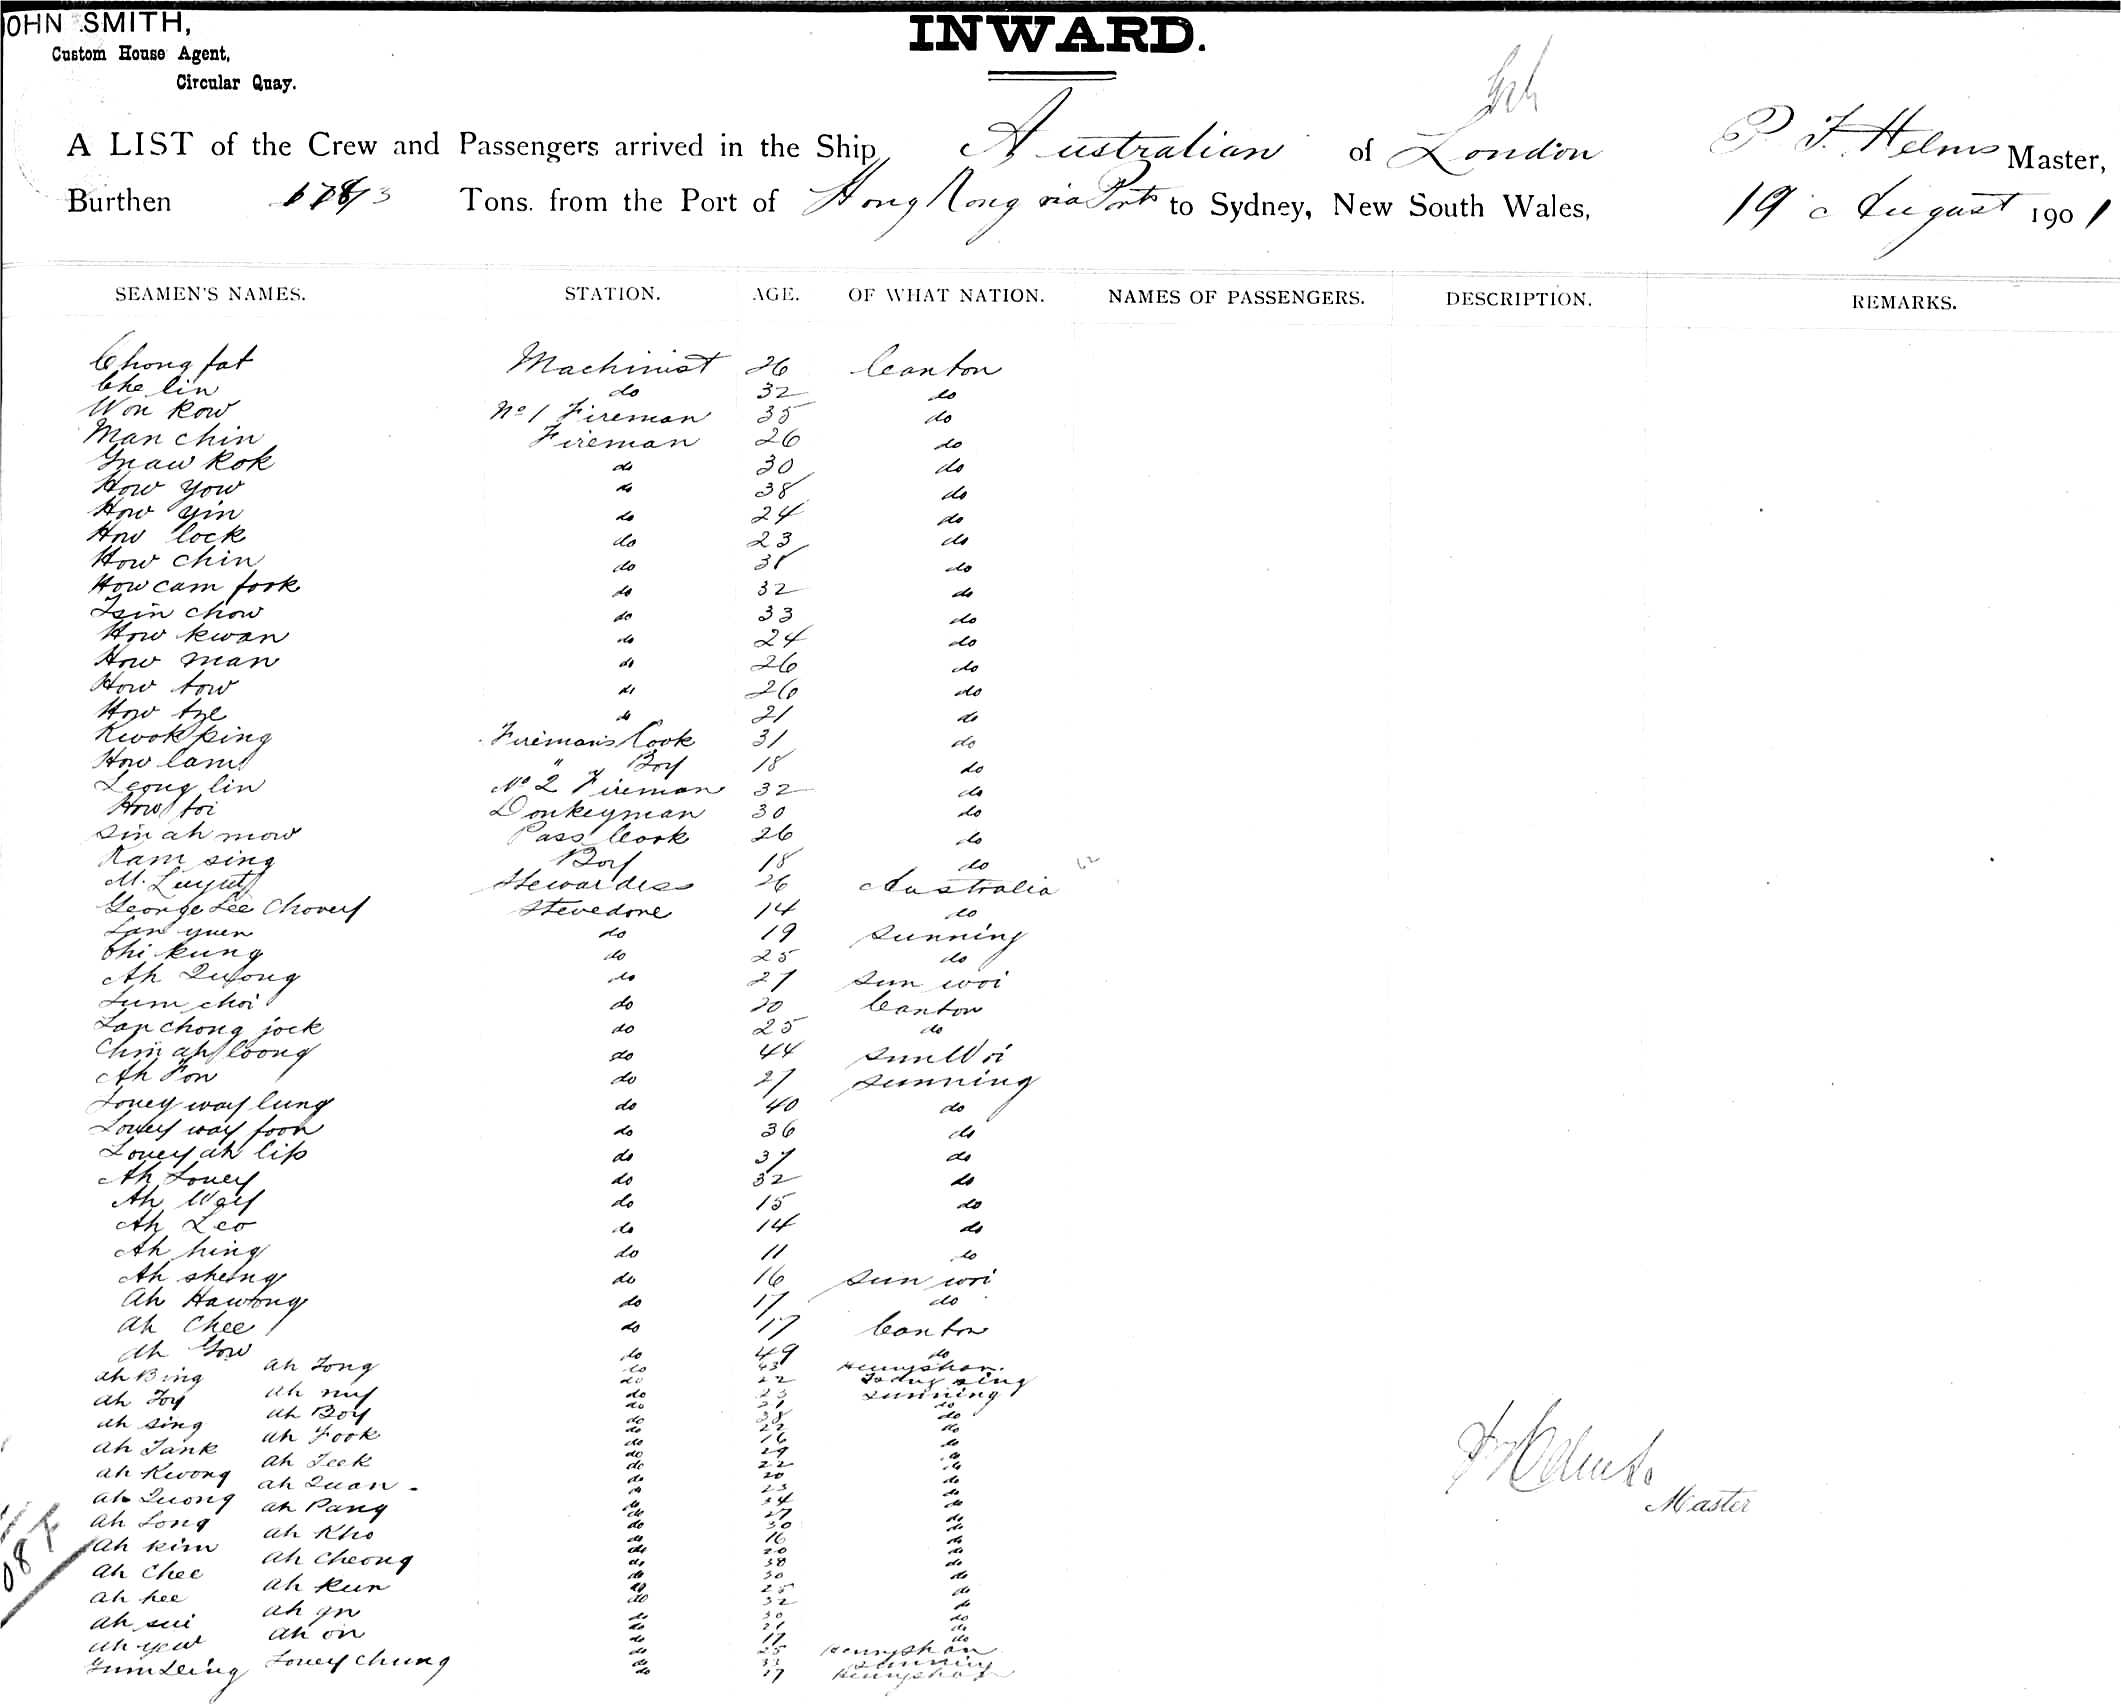 JOHN SMITH,
Custom House Agent,
Circular Quay.
INWARD.
A LIST of the Crew and Passengers arrived in the Ship Australian of London P. F. Helms Master,
Burthen Tons. from the Port of Hong Kong via Ports to Sydney, New South Wales, 19 August 1901
SEAMEN'S NAMES. STATION. AGE. OF WHAT NATION. NAMES OF PASSENGERS. DESCRIPTION. REMARKS.
Chong fat Machinist 26 Canton
Che lin do 32 do
Won Kow No 1 Fireman 35 do
Man chin Fireman 26 do
Gnaw Kok do 30 do
How yow do 38 do
How yin do 24 do
How lock do 23 do
How chin do 31 do
How cam fook do 32 do
Tsin chow do 33 do
How kwan do 24 do
How man do 26 do
How tow do 26 do
How tze do 21 do
Kwok ping Fireman's Cook 31 do
How lam " Boy 18 do
Leong lin No 2 Fireman 32 do
How foi Donkeyman 30 do
Sin ah mow Pass Cook 26 do
Kam sing Boy 18 do
M. Stewardess 26 Australia
George Lee Chovey Stevedore 14 do
Lan yuen do 19 Sunning
Chi kung do 25 do
Ah Quong do 27 Sun woi
Lum choi do 20 Canton
Lan chong jock do 25 do
Chin ah loong do 44 Sun Woi
Ah Fon do 27 Sunning
Louey way lung do 40 do
Louey way foon do 36 do
Louey ah lip do 37 do
Ah Louey do 32 do
Ah Way do 15 do
Ah Leo do 14 do
Ah hing do 11 do
Ah sheng do 16 Sun woi
Ah Hawong do 17 do
Ah Chee do 17 Canton
Ah Gow do 49 do
Ah Bing Ah Tong do 43
do 22
Ah Foy Ah muy do 23 Sunning
Ah Sing Ah Boy do 38 do
Ah Tank Ah Fook do 16 do
Ah Kwong Ah Teek do 22 do
Ah Quong Ah Quan do 23 do
Ah Long Ah Pang do 27 do
Ah Kim Ah Kho do 16 do
Ah Chee Ah Cheong do 38 do
Ah hee Ah Kun do 25 do
Ah sui Ah gn do 30 do
Ah yew Ah on do 17 do
Louey Chung do 33 Sunning
do 17
Master